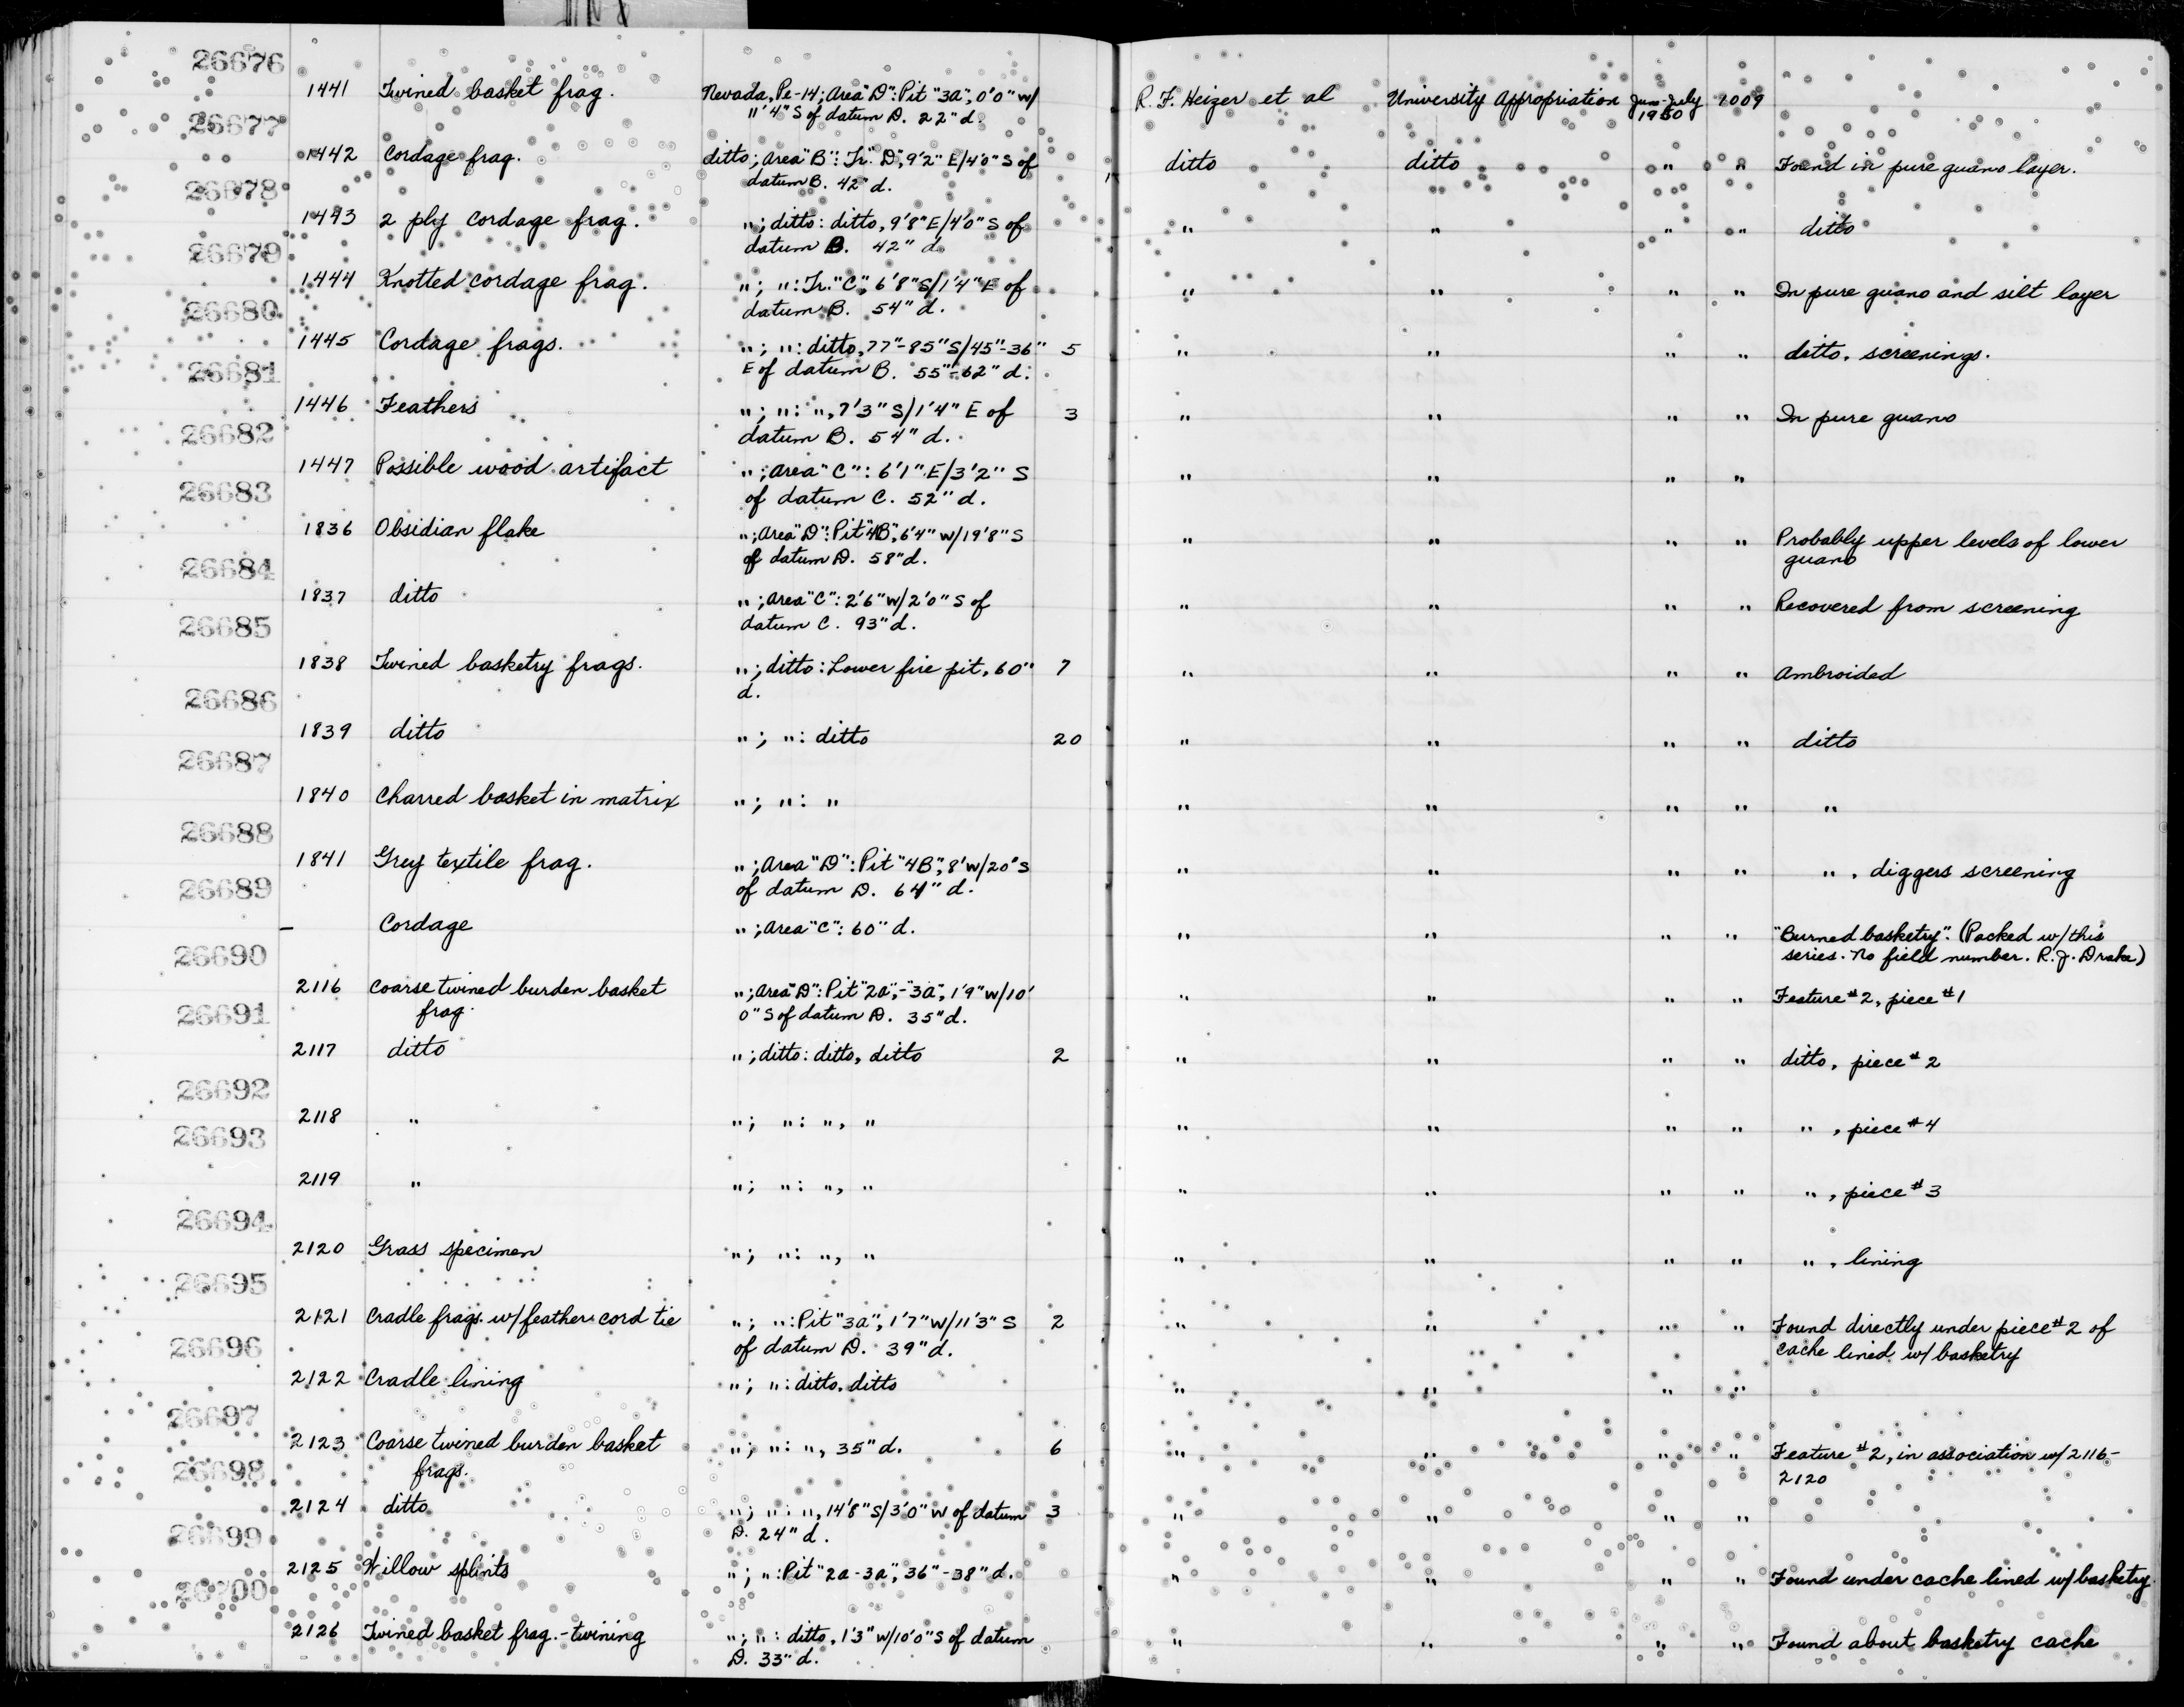 26676
1441 Twined basket frag. Nevada, Pe-14; Area "D": Pit "3A", 0'0" W/ R. F. Heizer et al University Appropriation June-July 1009
11'4" S of datum D. 22" d. 1950
26677
1442 Cordage frag. ditto; Area "B": Tr. "D", 9'2" E/4'0" S of ditto ditto " " Found in pure guano layer.
datum B. 42" d.
26678
1443 2 ply cordage frag. "; ditto: ditto, 9'8" E/4'0" S of " " " " ditto
datum B. 42" d.
26679
1444 Knotted cordage frag. "; ": Tr. "C", 6'8" S/1'4" E of " " " " In pure guano and silt layer
datum B. 54" d.
26680
1445 Cordage frags. "; ": ditto, 77"-85" S/45"-36" 5 " " " " ditto. screenings.
E of datum B. 55"-62" d.
26681
1446 Feathers "; ": ", 7'3" S/1'4" E of 3 " " " " In pure guano
datum B. 54" d.
26682
1447 Possible wood artifact "; Area "C": 6'1" E/3'2" S " " " "
of datum C. 52" d.
26683
1836 Obsidian flake "; Area "D": Pit "4B", 6'4" W/19'8" S " " " " Probably upper levels of lower
of datum D. 58" d. guano
26684
1837 ditto "; Area "C": 2'6" W/2'0" S of " " " " Recovered from screening
datum C. 93" d.
26685
1838 Twined basketry frags. "; ditto: Lower fire pit, 60" 7 " " " " Ambroided
d.
26686
1839 ditto "; ": ditto 20 " " " " ditto
26687
1840 Charred basket in matrix "; ": " " " " " "
26688
1841 Grey textile frag. "; Area "D": Pit "4B", 8' W/20' S " " " " ", diggers screening
of datum D. 64" d.
26689
- Cordage "; Area "C": 60" d. " " " " "Burned basketry". (Packed w/this
series. No field number. R. J. Drake)
26690
2116 Coarse twined burden basket "; Area "D": Pit "2A"-"3A", 1'9" W/10' " " " " Feature #2, piece #1
frag. 0" S of datum D. 35" d.
26691
2117 ditto "; ditto: ditto, ditto 2 " " " " ditto, piece #2
26692
2118 " "; ": ", " " " " " ", piece #4
26693
2119 " "; ": ", " " " " " ", piece #3
26694
2120 Grass specimen "; ": ", " " " " " ", lining
26695
2121 Cradle frags. w/feather cord tie "; ": Pit "3A", 1'7" W/11'3" S 2 " " " " Found directly under piece #2 of
of datum D. 39" d. cache lined w/basketry
26696
2122 Cradle lining "; ": ditto. ditto " " " "
26697
2123 Coarse twined burden basket "; ": ", 35" d. 6 " " " " Feature #2, in association w/2116-
frags. 2120
26698
2124 ditto "; ": ", 14'8" S/3'0" W of datum 3 " " " "
D. 24" d.
26699
2125 Willow splints "; ": Pit "2A-3A", 36"-38" d. " " " " Found under cache lined w/basketry
26700
2126 Twined basket frag.-twining "; ": ditto, 1'3" W/10'0" S of datum " " " " Found about basketry cache
D. 33" d.